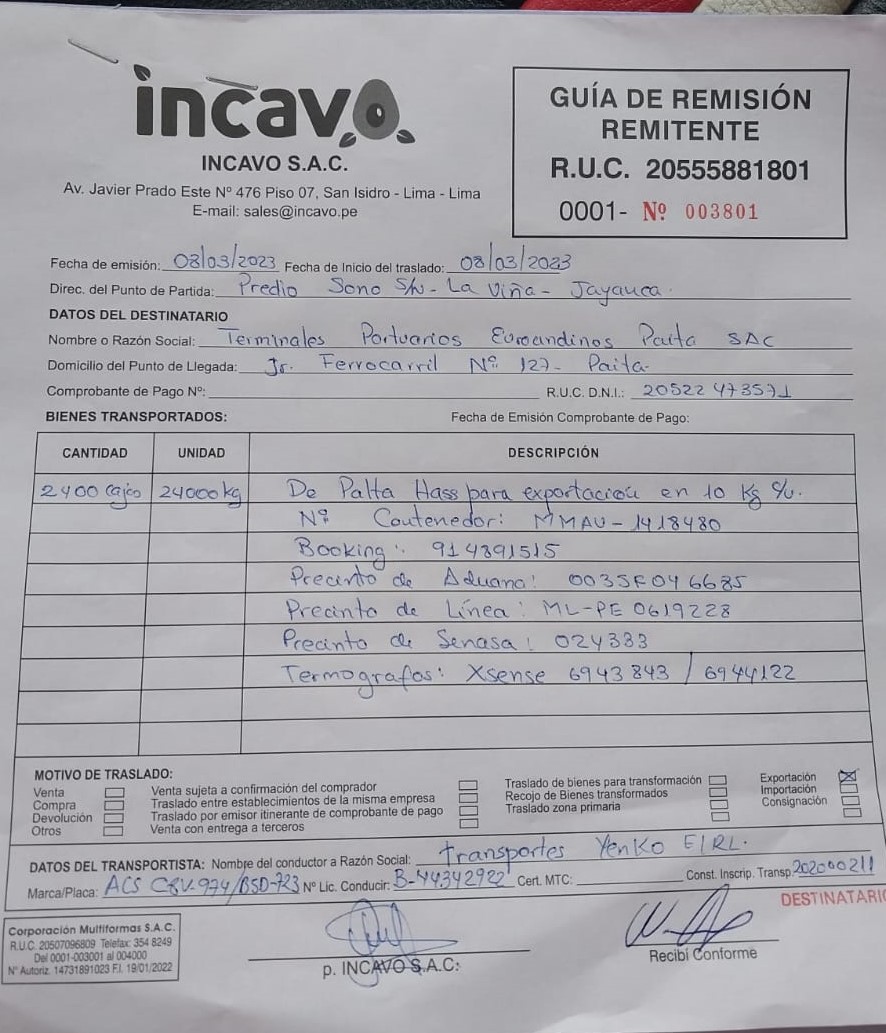 incavo
INCAVO S.A.C.
Av. Javier Prado Este Nº 476 Piso 07, San Isidro - Lima - Lima
E-mail: sales@incavo.pe
GUÍA DE REMISIÓN
REMITENTE
R.U.C. 20555881801
0001- Nº 003801
Fecha de emisión: 08/03/2023 Fecha de Inicio del traslado: 08/03/2023
Direc. del Punto de Partida: Predio Sono S/N - La Viña - Jayanca.
DATOS DEL DESTINATARIO
Nombre o Razón Social: Terminales Portuarios Euroandinos Paita SAC
Domicilio del Punto de Llegada: Jr. Ferrocarril Nº 127 - Paita
Comprobante de Pago Nº: R.U.C. D.N.I.: 20522473571
BIENES TRANSPORTADOS: Fecha de Emisión Comprobante de Pago:
CANTIDAD UNIDAD DESCRIPCIÓN
2400 cajas 24000 kg De Palta Hass para exportación en 10 Kg c/u.
Nº Contenedor: MMAU-1418480
Booking: 914891515
Precinto de Aduana: 0035F046685
Precinto de Línea: ML-PE 0619228
Precinto de Senasa: 024333
Termografos: Xsense 6943843 / 6944122
MOTIVO DE TRASLADO:
Venta Venta sujeta a confirmación del comprador Traslado de bienes para transformación Exportación X
Compra Traslado entre establecimientos de la misma empresa Recojo de Bienes transformados Importación
Devolución Traslado por emisor itinerante de comprobante de pago Traslado zona primaria Consignación
Otros Venta con entrega a terceros
DATOS DEL TRANSPORTISTA: Nombre del conductor a Razón Social: Transportes Yenko EIRL.
Marca/Placa: ACS CBV-974/BSD-723 Nº Lic. Conducir: B-44342922 Cert. MTC: Const. Inscrip. Transp. 202000211
DESTINATARIO
Corporación Multiformas S.A.C.
R.U.C. 20507096809 Telefax: 354 8249
Del 0001-003001 al 004000
Nº Autoriz. 14731891023 F.I. 19/01/2022
p. INCAVO S.A.C.
Recibí Conforme